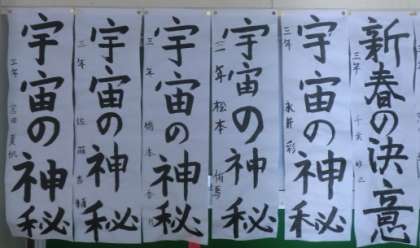 新春の決意
三年
宇宙の神秘
三年 永井 彩
宇宙の神秘
三年 松本
宇宙の神秘
三年 橋本
宇宙の神秘
三年 佐藤
宇宙の神秘
三年